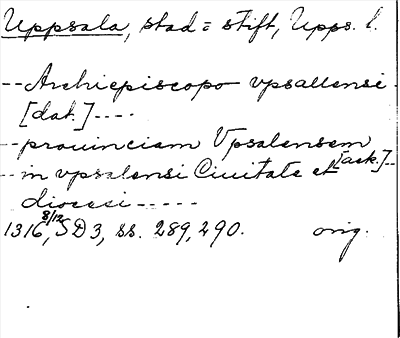 Uppsala, stad = stift, Upps. l.
-- Archiepiscopo vpsallensi -
[dat.] ----
-- prouinciam Vpsalensem
-- in vpsalensi Ciuitate et [ack.] --
diocesi -----
1316, 8/12 SD3, ss. 289, 290. orig.